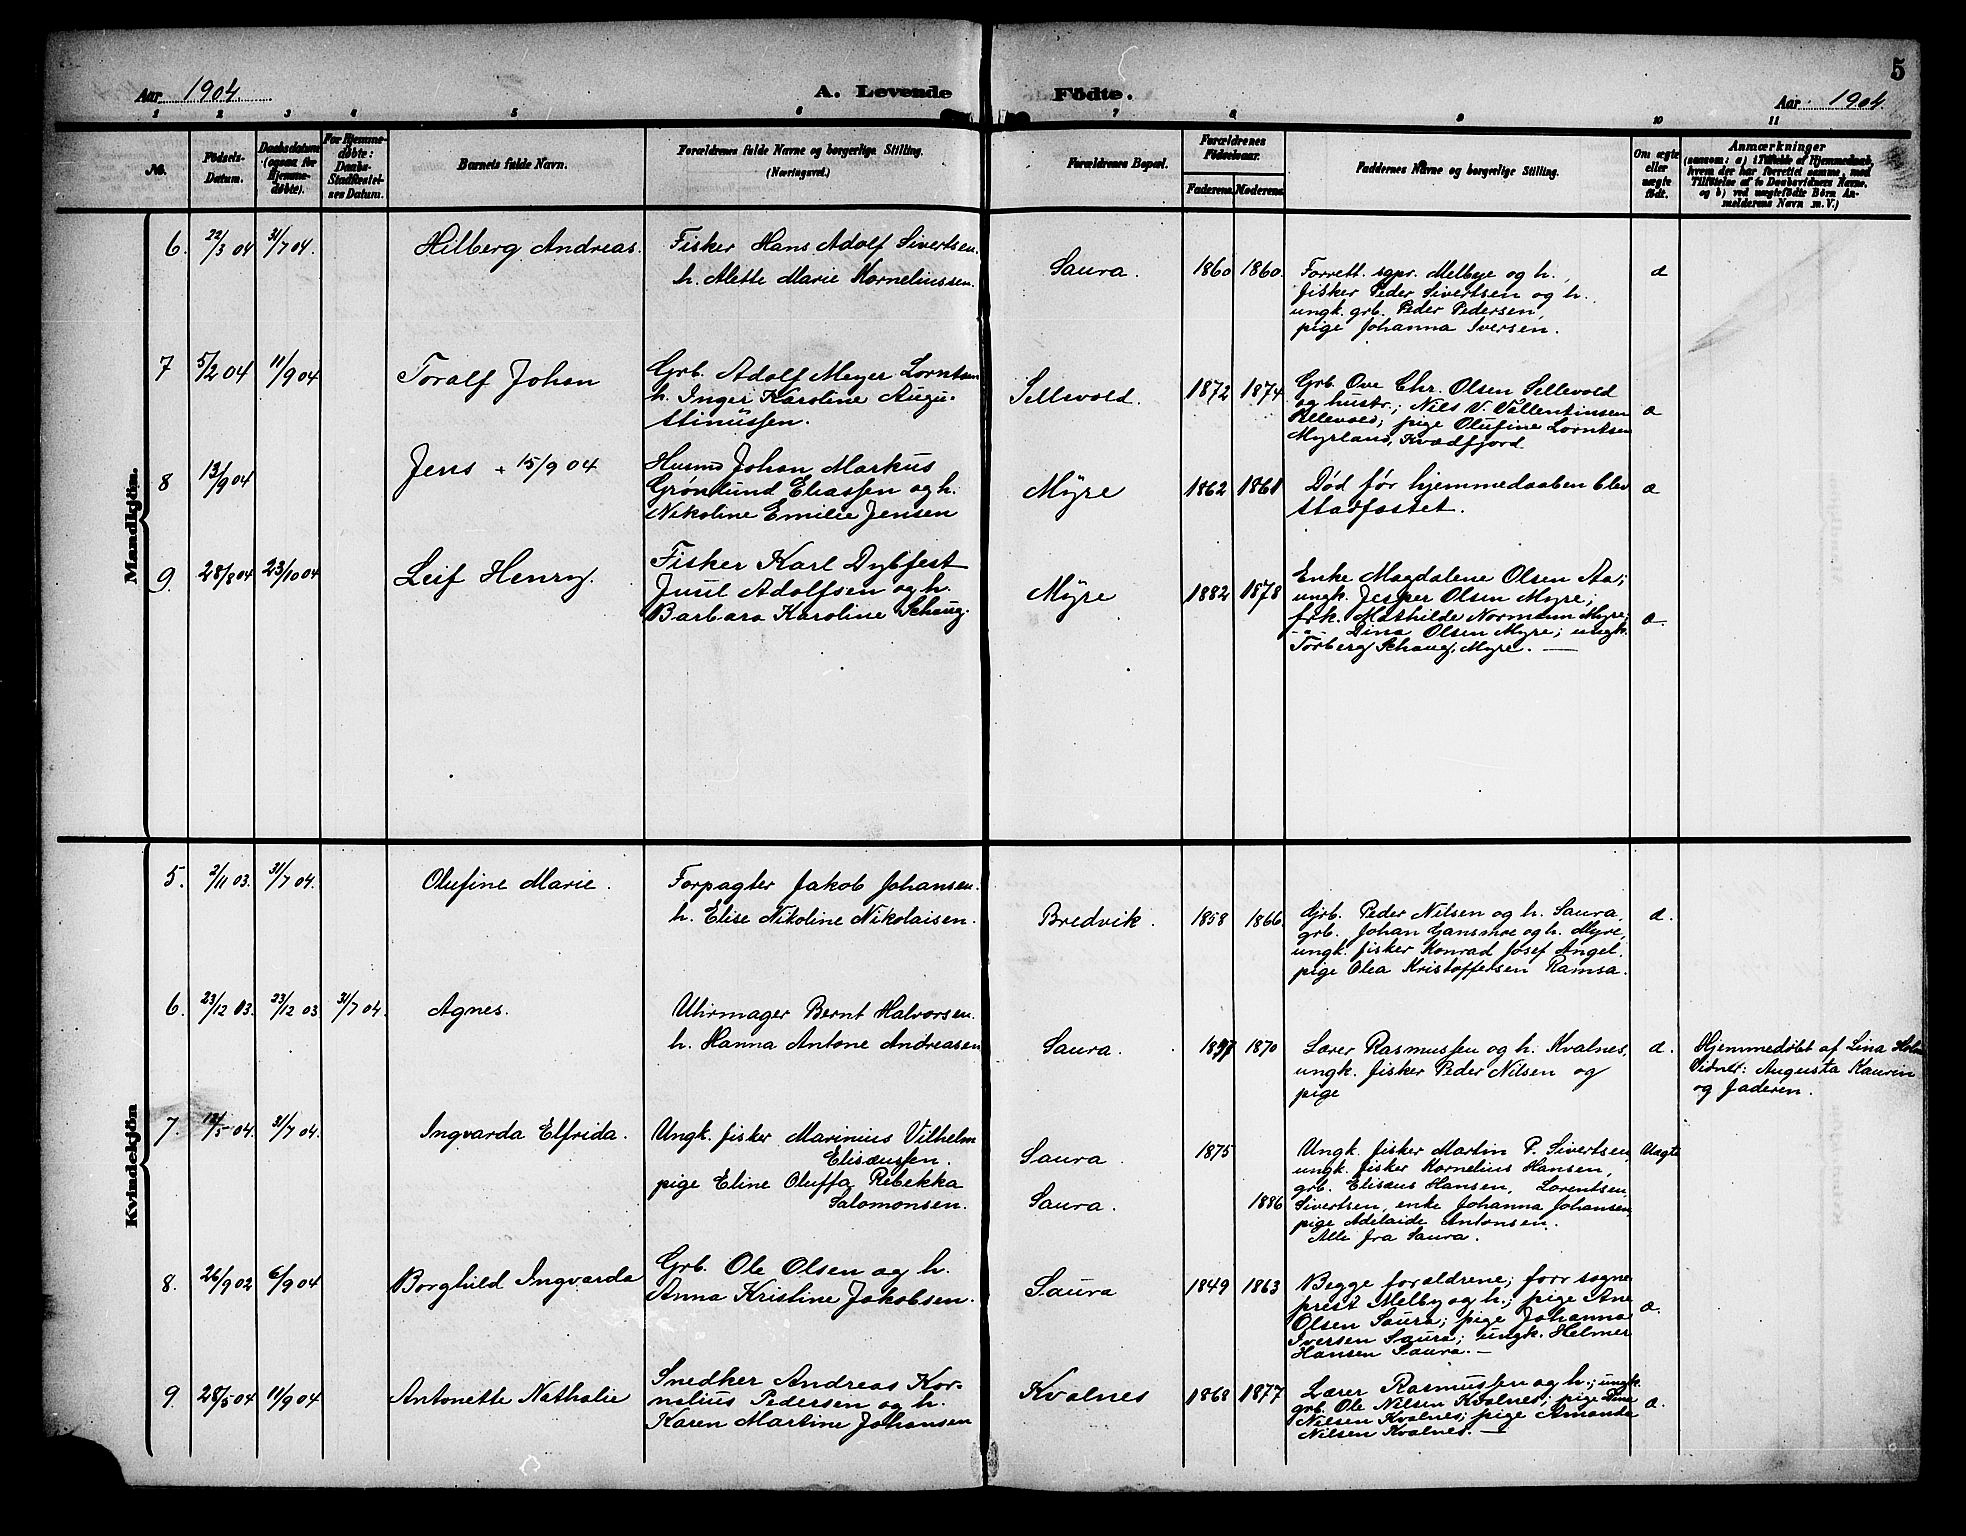 5
Aar 1904
A. Levende
Födte.
Aar 1904.
1 2 3 4 5 6 7 8 9 10 11
No.
Födsels-
Datum.
Daabsdatum
(ogsaa for
Hjemme-
døbte).
For Hjemme-
døbte:
Daabs-
Stadfæstel-
ses Datum.
Barnets fulde Navn.
Forældrenes fulde Navne og borgerlige Stilling.
(Næringsvei.)
Forældrenes Bopæl.
Forældrenes
Födselsaar.
Faderens. Moderens.
Faddernes Navne og borgerlige Stilling.
Om ægte
eller
uægte
født.
Anmærkninger
(saasom: a) i Tilfælde af Hjemmedaab,
hvem der har forrettet samme, med
Tilföielse af to Daabsvidners Navne,
og b) ved uægtefödte Börn An-
melderens Navn m. V.)
Mandkjön.
6. 22/3 04 31/7 04. Hilberg Andreas.
Fisker Hans Adolf Sivertsen.
h. Alette Marie Kornelinssen.
Saura. 1860 1860.
Forrett. sgpr. Melbye og h.,
fisker Peder Sivertsen og h.,
ungk. grb. Peder Pedersen,
pige Johanna Iversen.
æ
7 5/2 04 11/9 04 Toralf Johan
Grb. Adolf Meyer Lorntsen
h. Inger Karoline Augu-
stinussen.
Sellevold. 1872 1874
Grb. Ove Chr. Olsen Sellevold
og hustr.; Nils V. Vallentinsen
Sellevold; pige Olufine Lorntsen
Myrland, Kvædfjord
æ
8 13/9 04 Jens + 15/9 04
Husmd Johan Markus
Grønlund Eliassen og h.
Nikoline Emilie Jensen
Myre 1862 1861
Død før hjemmedaaben blev
stadfæstet.
æ
9. 28/8 04 23/10 04 Leif Henry.
Fisker Karl Dybfest
Juul Adolfsen og h.
Barbara Karoline Schaug.
Myre 1882 1878
Enke Magdalene Olsen Aa;
ungk. Jesper Olsen Myre;
frk. Mathilde Normann Myre;
- " - Dina Olsen Myre; ungk.
Torberg Schaug, Myre. —
æ.
Kvindekjön
5. 2/11 03. 31/7 04. Olufine Marie.
Forpagter Jakob Johansen.
h. Elise Nikoline Nikolaisen.
Bredvik. 1858 1866.
Grb. Peder Nilsen og h. Saura,
grb. Johan Gansmoe og h. Myre,
ungk. fisker Konrad Josef Angel.
pige Olea Kristoffersen Ramsa.
æ.
6. 23/12 03. 23/12 03 31/7 04. Agnes.
Uhrmager Bernt Halvorsen.
h. Hanna Antone Andreasen
Saura. 1870
Lærer Rasmussen og h. Kvalnes,
ungk. fisker Peder Nilsen og
pige
æ.
Hjemmedøbt af Lina Holm
Vidner: Augusta Kaurin
og faderen.
7. 12/5 04. 31/7 04. Ingvarda Elfrida.
Ungk. fisker Marinius Vilhelm
Elisæussen.
pige Eline Oluffa Rebekka
Salomonsen.
Saura. 1875
Saura. 1886
Ungk. fisker Martin P. Sivertsen,
ungk. fisker Kornelius Hansen,
grb. Elisæus Hansen, Lorentsen,
Sivertsen, enke Johanna Johansen,
pige Adelaide Antonsen.
Alle fra Saura.
Uægte
8. 26/9 02 6/9 04 Borghild Ingvarda
Grb. Ole Olsen og h.
Anna Kristine Jakobsen.
Saura 1849 1863
Begge forældrene; forr sogne
prest Melby og h.; pige Ane
Olsen Saura; pige Johanna
Iversen Saura; ungk. Helmer
Hansen Saura. —
æ.
9. 28/5 04 11/9 04 Antonette Nathalie
Snedker Andreas Kor-
nelius Pedersen og h.
Karen Martine Johansen
Kvalnes 1868 1877
Lærer Rasmussen og h.; ungk.
grb. Ole Nilsen Kvalnes; pige Tine
Nilsen Kvalnes; pige Amanda
Nilsen Kvalnes. —
æ.